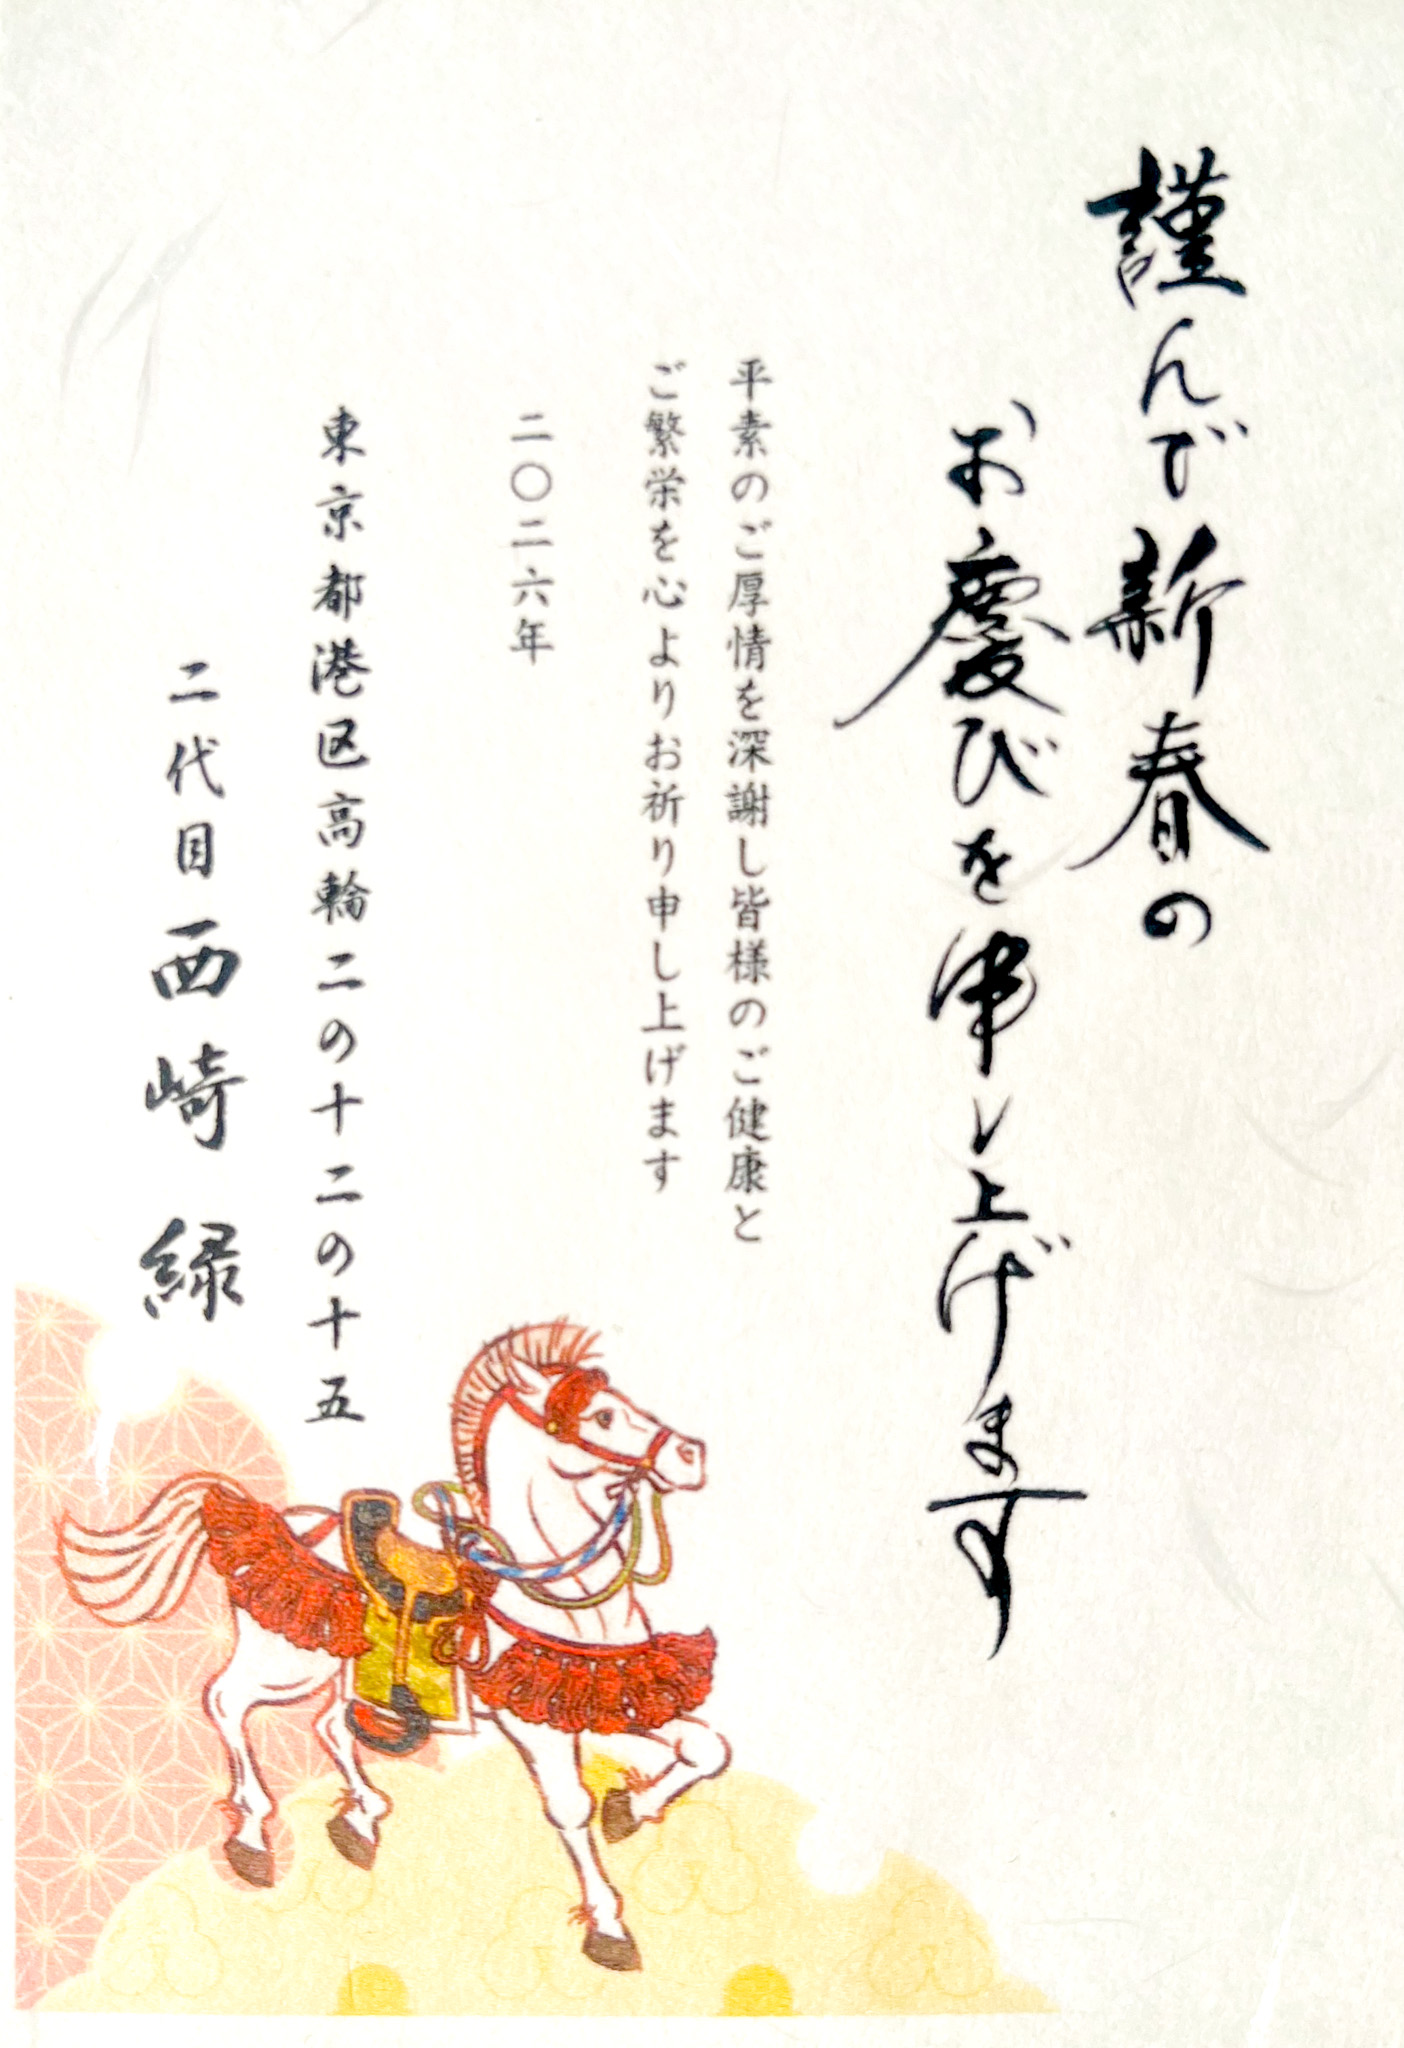 謹んで新春の
お慶びを申し上げます
平素のご厚情を深謝し皆様のご健康と
ご繁栄を心よりお祈り申し上げます
二〇二六年
東京都港区高輪二の十二の十五
二代目西崎緑